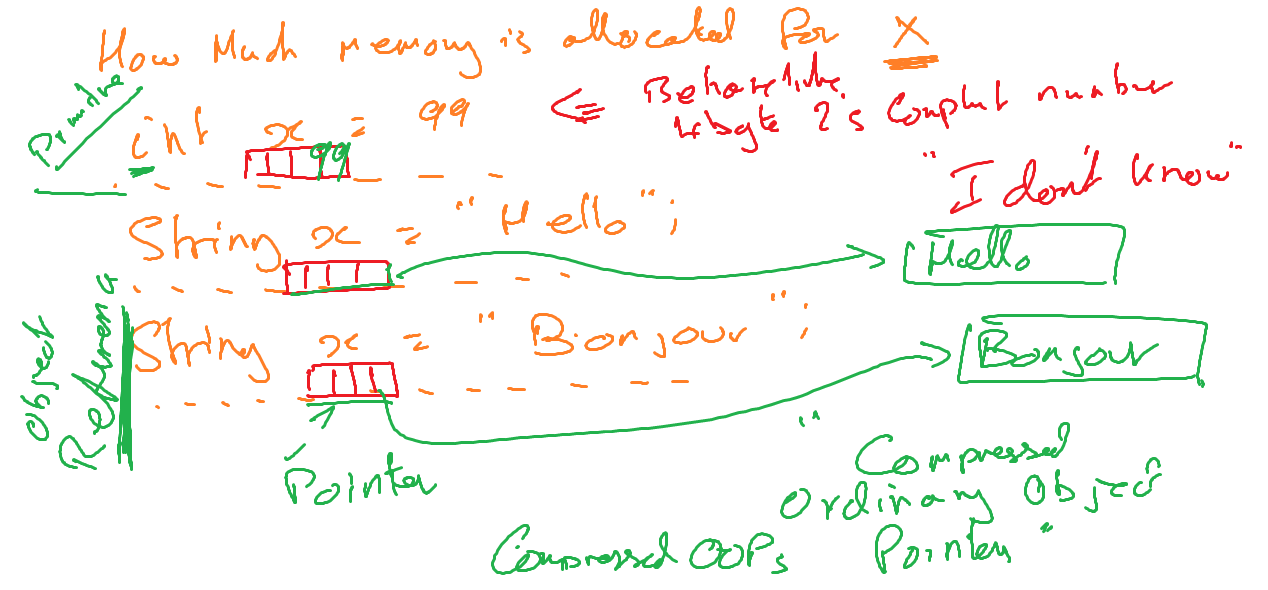 How Much memory is allocated for X
Primitive
int x = 99
99
<= Behave like
4 byte 2's Complemt number
"I don't know"
String x = "Hello";
Hello
Object
Reference
String x = "Bonjour";
Bonjour
Pointer
"Compressed
Ordinary Object
Pointers"
Compressed OOPs